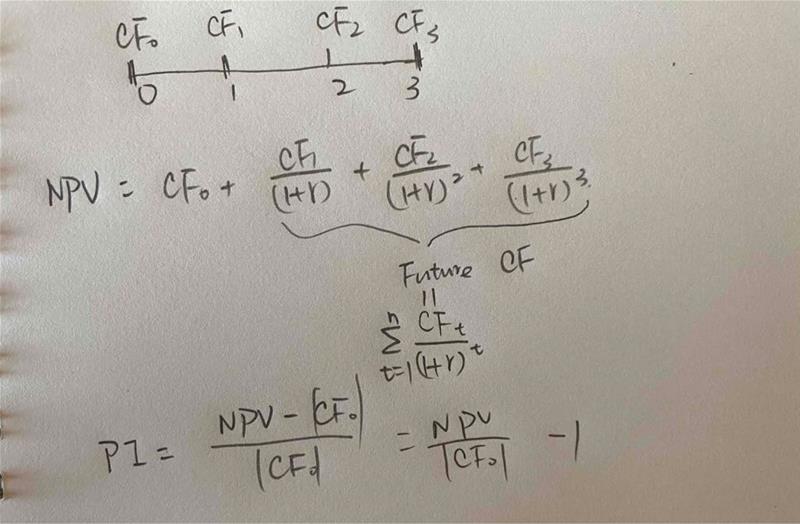 CF₀ CF₁ CF₂ CF₃
0 1 2 3
NPV = CF₀ + CF₁/(1+r) + CF₂/(1+r)² + CF₃/(1+r)³
Future CF
=
n Σ t=1 CFₜ/(1+r)ᵗ
PI = (NPV - |CF₀|)/|CF₀| = NPV/|CF₀| - 1